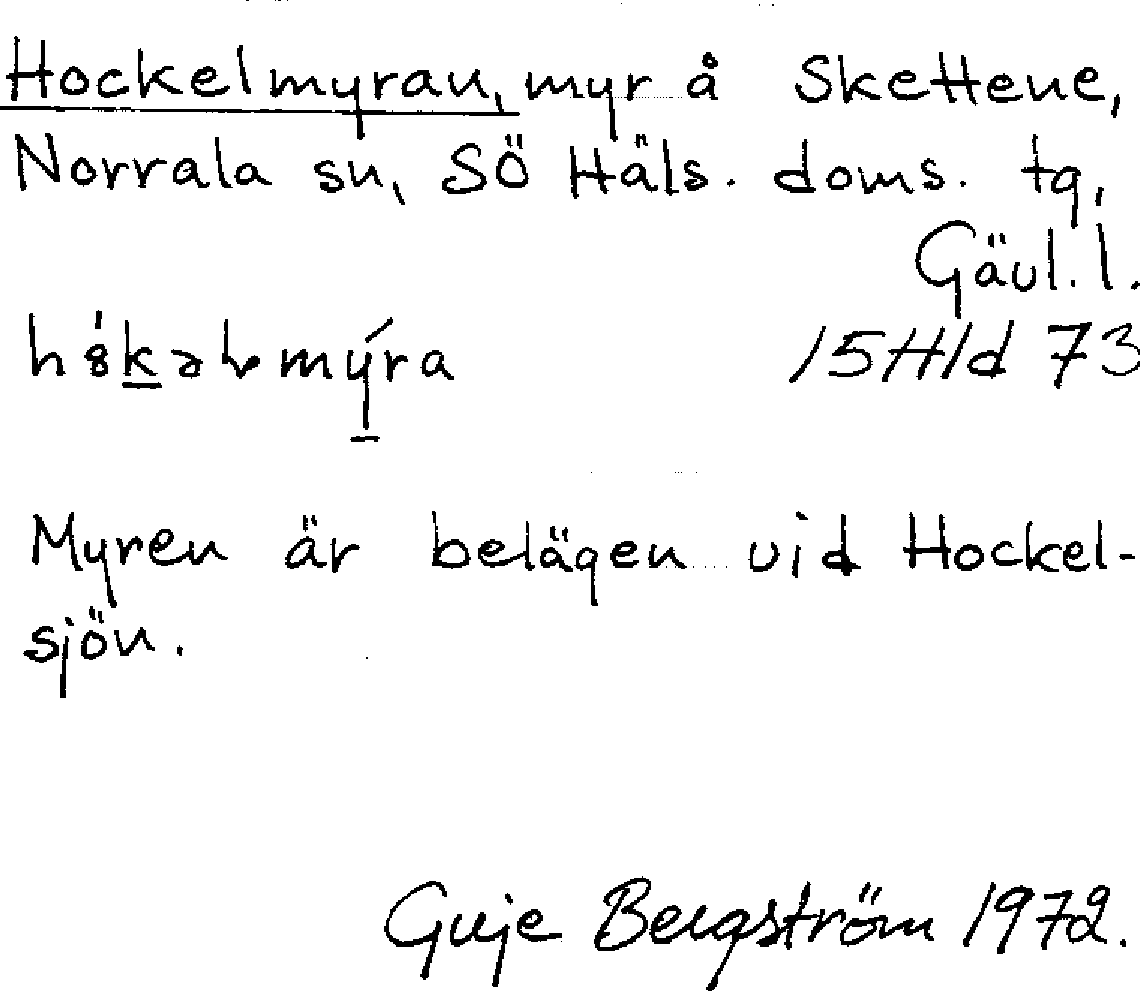 Hockelmyran, myr å Skettene,
Norrala sn, SÖ Häls. doms. tg,
Gävl. l.
15H1d 73
Myren är belägen vid Hockel-
sjön.
Guje Bergström 1972.